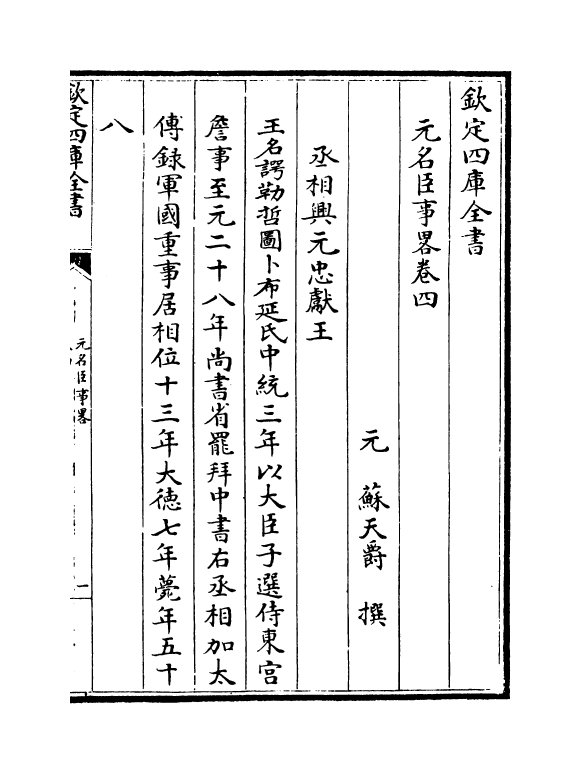 欽定四庫全書
元名臣事畧卷四
元　蘇天爵　撰
丞相興元忠獻王
王名諤勒哲圖卜布延氏中統三年以大臣子選侍東宫
詹事至元二十八年尚書省罷拜中書右丞相加太
傅録軍國重事居相位十三年大徳七年薨年五十
八
欽定四庫全書
元名臣事畧
一